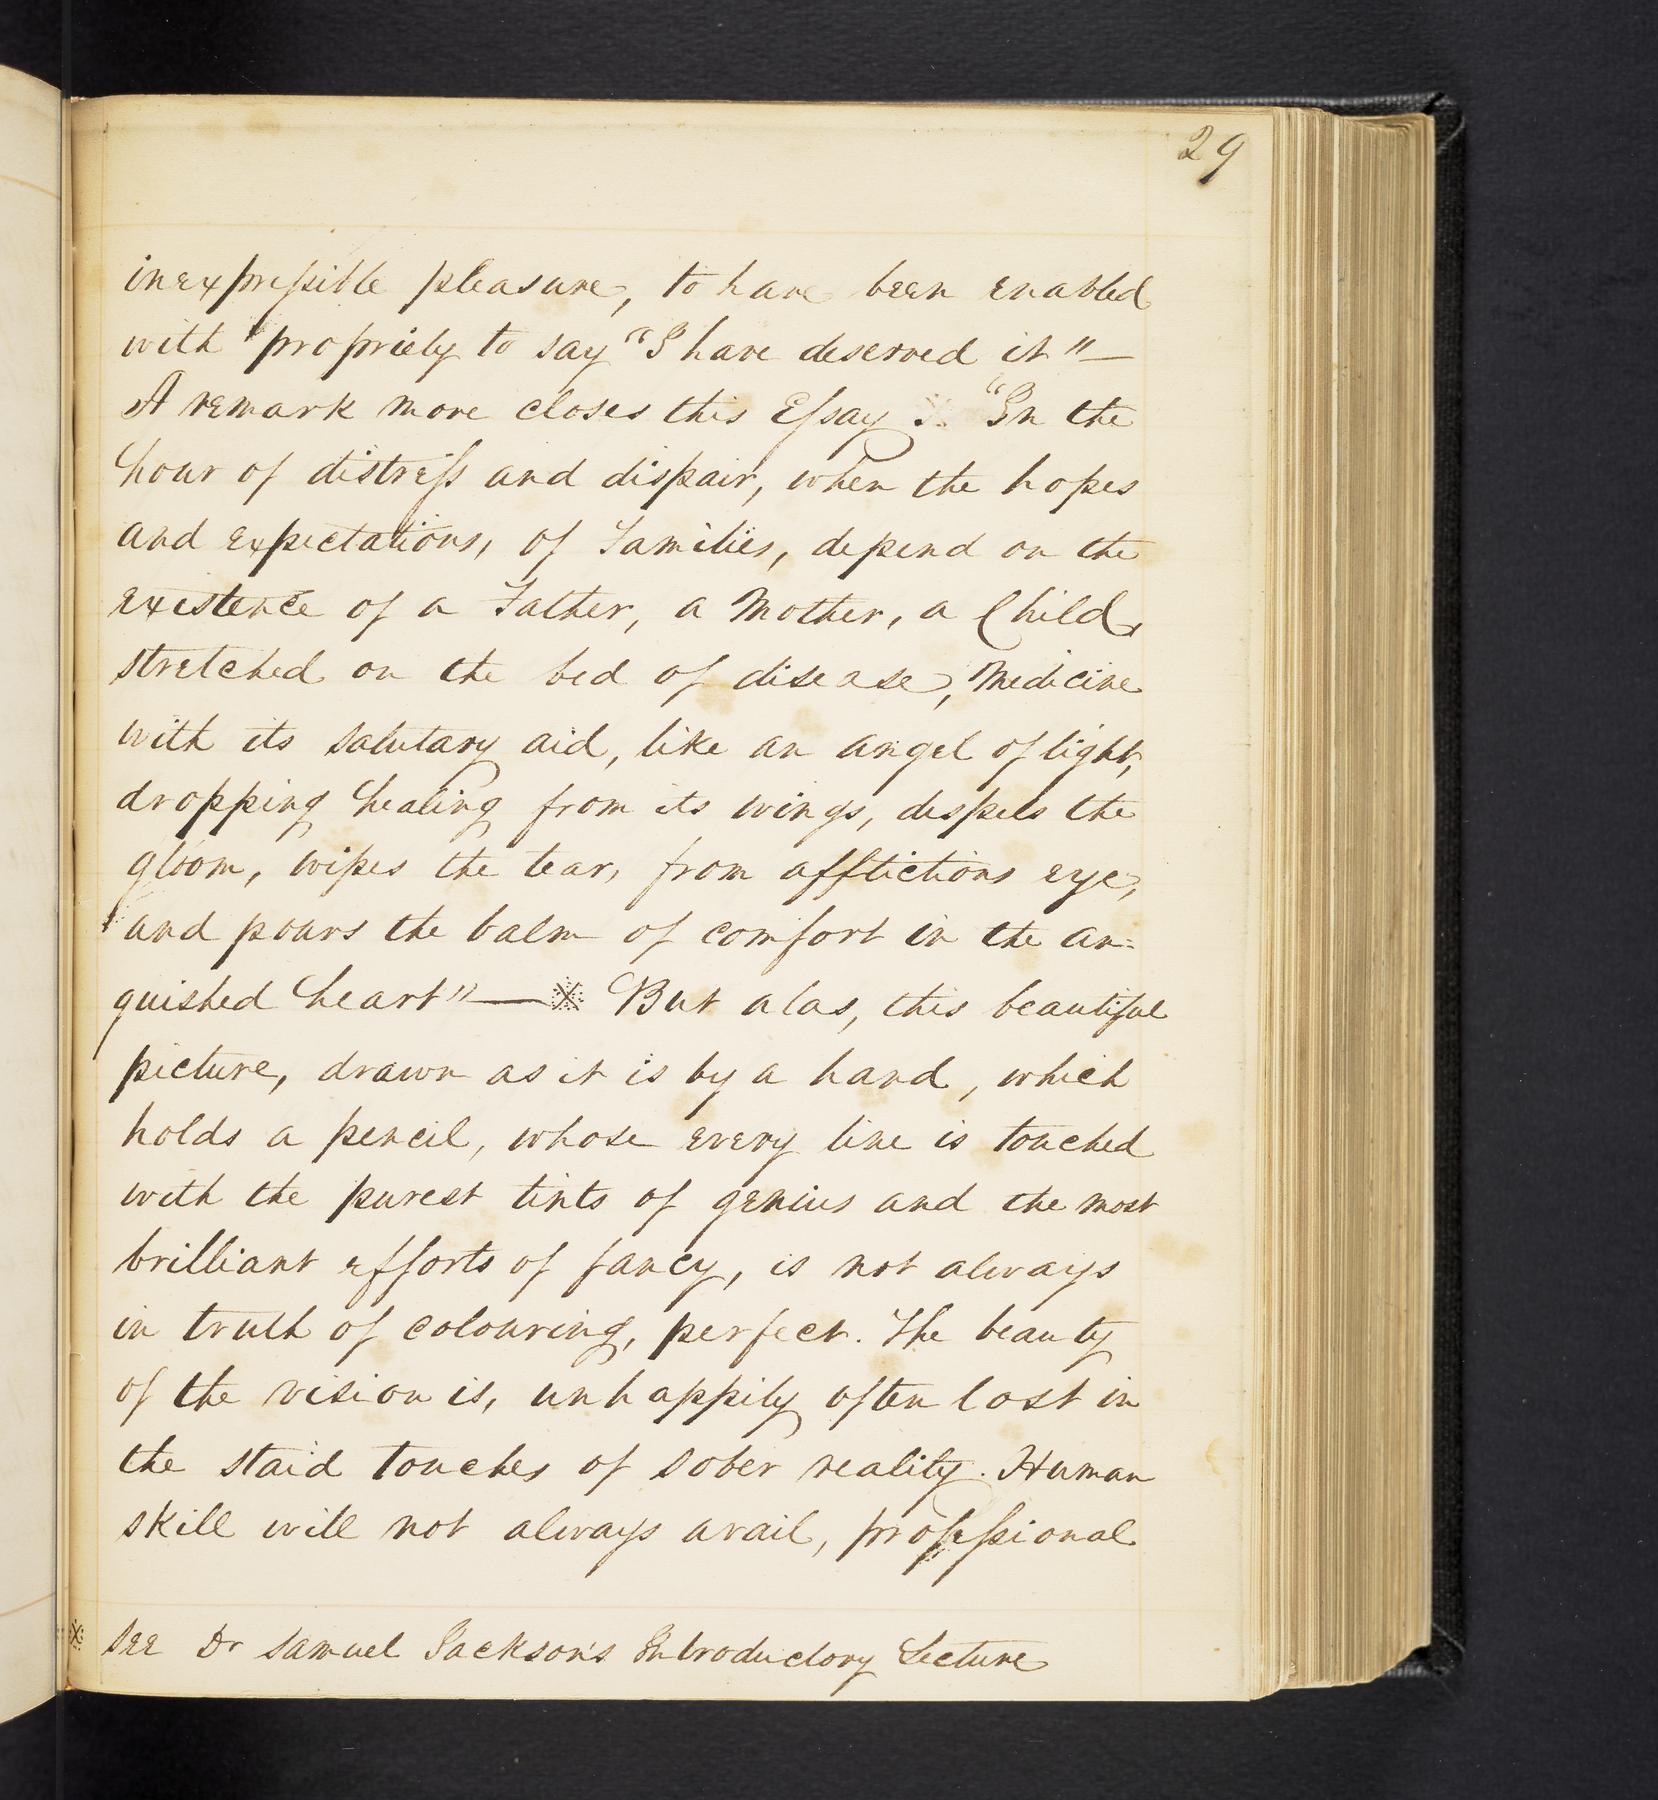 29
inexpressible pleasure, to have been enabled
with propriety to say "I have deserved it"—
A remark more closes this Essay. "In the
hour of distress and dispair, when the hopes
and expectations, of Families, depend on the
existence of a Father, a Mother, a Child,
stretched on the bed of disease, Medicine
with its salutary aid, like an angel of light,
dropping healing from its wings, despels the
gloom, wipes the tear, from afflictions eye,
and pours the balm of comfort in the an=
guished heart"—※ But alas, this beautiful
picture, drawn as it is by a hand, which
holds a pencil, whose every line is touched
with the purest tints of genius and the most
brilliant efforts of fancy, is not always
in truth of colouring, perfect. The beauty
of the vision is, unhappily often lost in
the staid touches of sober reality. Human
skill will not always avail, professional
※ see Dr Samuel Jackson's Introductory Lecture